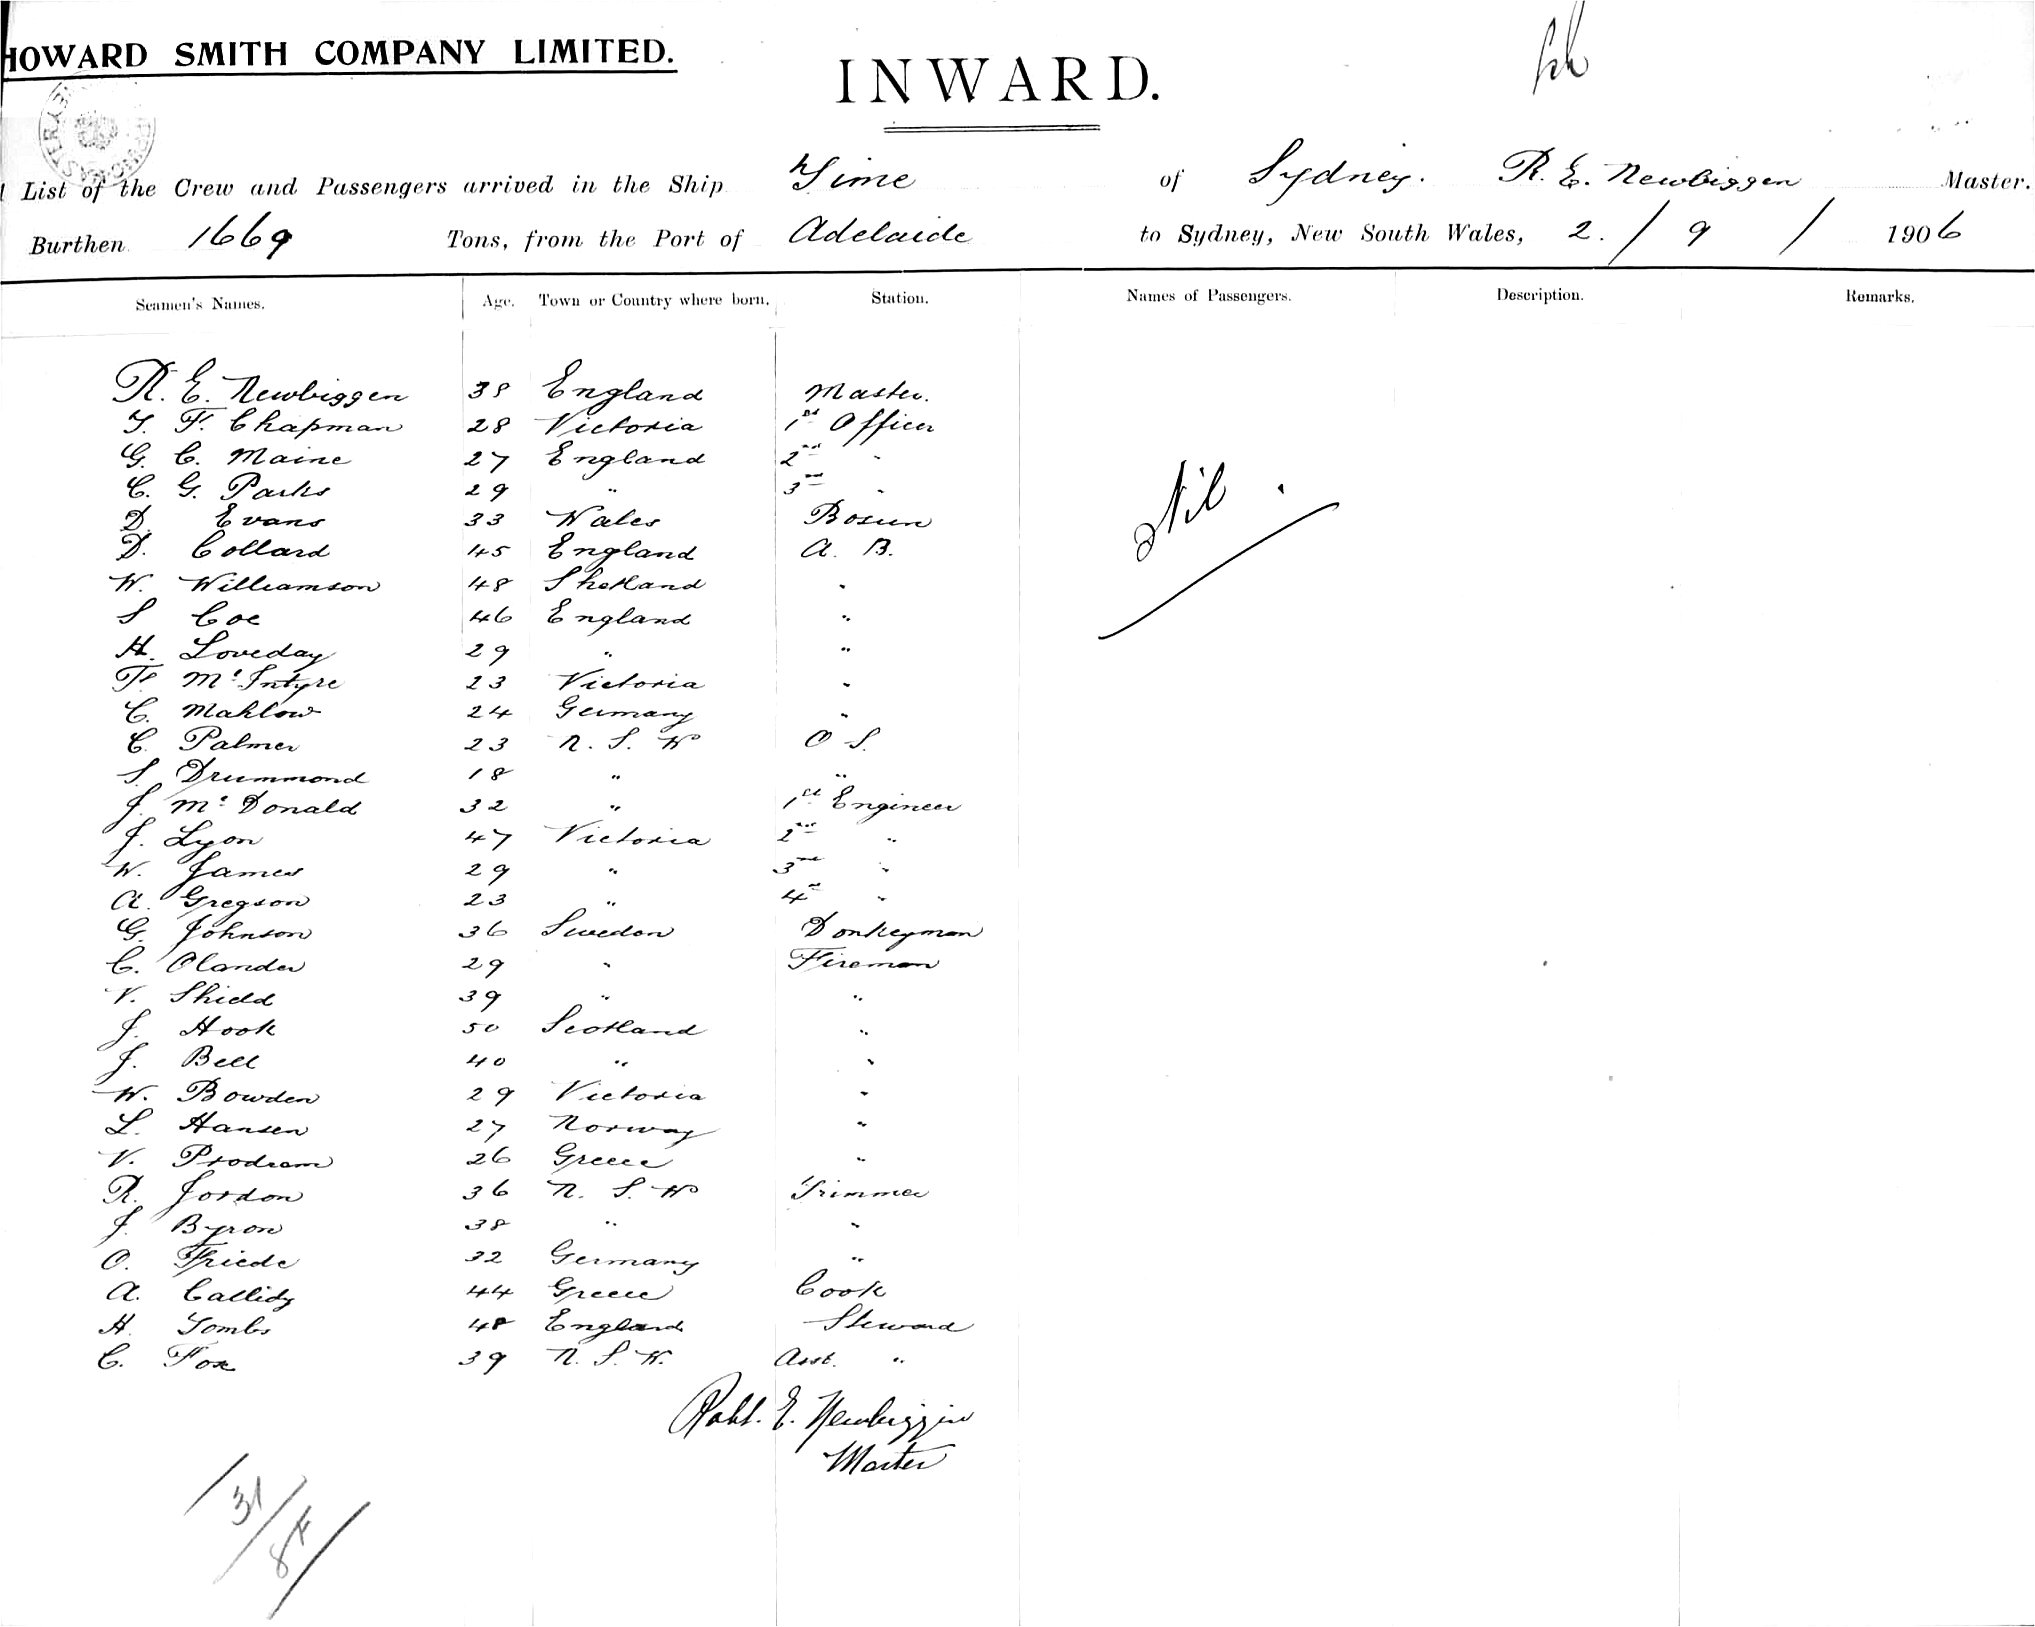 HOWARD SMITH COMPANY LIMITED.
INWARD.
List of the Crew and Passengers arrived in the Ship Time of Sydney. R. E. Newbiggen Master.
Burthen 1669 Tons, from the Port of Adelaide to Sydney, New South Wales, 2. / 9 / 1906
Seamen's Names. Age. Town or Country where born. Station. Names of Passengers. Description. Remarks.
R. E. Newbiggen 38 England Master.
T. F. Chapman 28 Victoria 1st Officer
G. C. Maine 27 England 2nd "
C. G. Parks 29 " 3rd "
D. Evans 33 Wales Bosun
D. Collard 45 England A. B.
W. Williamson 48 Shetland "
S Coe 46 England "
H. Loveday 29 " "
F. McIntyre 23 Victoria "
C. Mahlow 24 Germany "
C. Palmer 23 N. S. W O S.
S. Drummond 18 " "
J. McDonald 32 " 1st Engineer
J. Lyon 47 Victoria 2nd "
W. James 29 " 3rd "
A. Gregson 23 " 4th "
G. Johnson 36 Sweden Donkeyman
C. Olander 29 " Fireman
V. Shield 39 " "
J. Hook 50 Scotland "
J. Bell 40 " "
W. Bowden 29 Victoria "
L. Hansen 27 Norway "
V. Prodrom 26 Greece "
R. Jordon 36 N. S. W Trimmer
J. Byron 38 " "
O. Friede 32 Germany "
A. Callidy 44 Greece Cook
H. Tombs 48 England Steward
C. Fox 39 N. S. W. Asst. "
Nil.
Robt. E. Newbiggin
Master
31